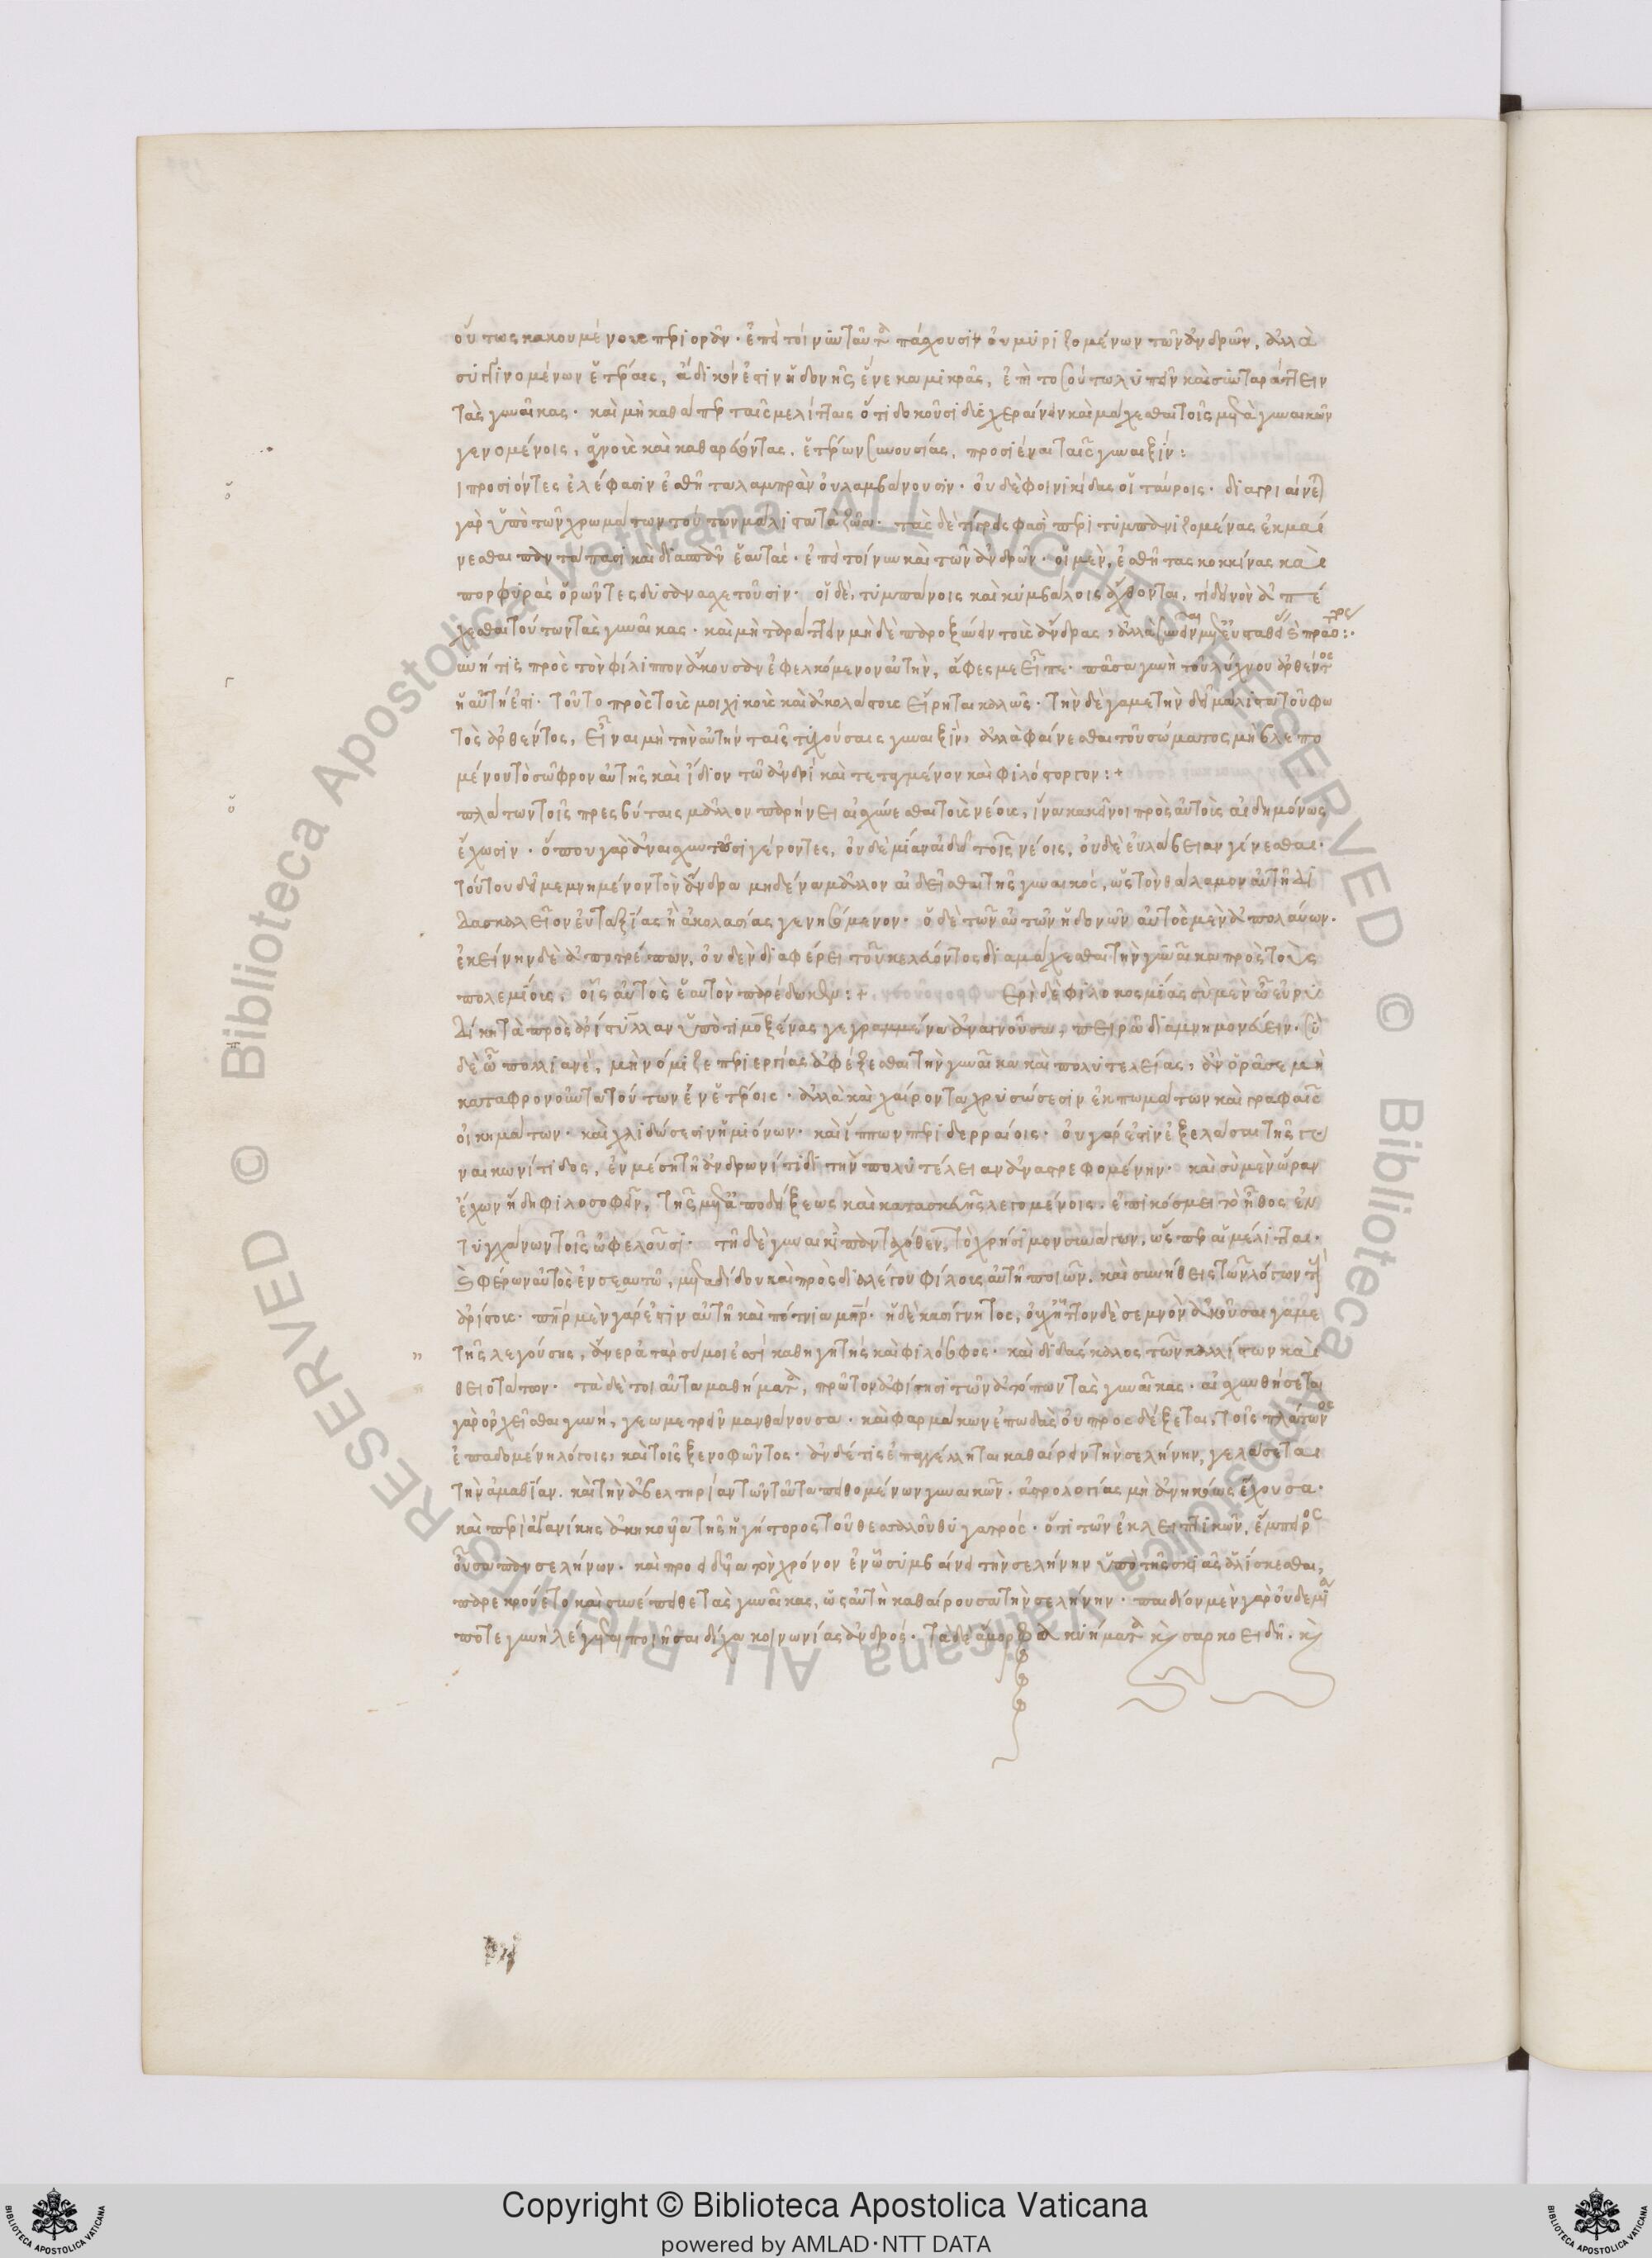 οὕτως κακουμένους περιορᾶν. ἐπεὶ τοίνυν ταῦτα πάσχουσιν οὐ μυριζομένων τῶν ἀνδρῶν, ἀλλὰ
συγγινομένων ἑτέραις, ἄδικόν ἐστιν ἡδονῆς ἕνεκα μικρᾶς, ἐπὶ τοσοῦτο λυπεῖν καὶ συνταράττειν
τὰς γυναῖκας. καὶ μὴ καθάπερ ταῖς μελίτταις ὅτι δοκοῦσι δυσχεραίνειν καὶ μάχεσθαι τοῖς μετὰ γυναικῶν
γενομένοις, ἁγνοὺς καὶ καθαρεύοντας ἑτέρων συνουσίας, προσιέναι ταῖς γυναιξίν:
ι προσιόντες ἐλέφασιν ἐσθῆτα λαμπρὰν οὐ λαμβάνουσιν. οὐδὲ φοινικίδας οἱ ταύροις. διαγριαίνεται
γὰρ ὑπὸ τῶν χρωμάτων τούτων μάλιστα τὰ ζῶα. τὰς δὲ τίγρεις φασὶ περιτυμπανιζομένας ἐκμαί
νεσθαι παντάπασι καὶ διασπᾶν ἑαυτάς. ἐπεὶ τοίνυν καὶ τῶν ἀνδρῶν. οἱ μὲν, ἐσθῆτας κοκκίνας καὶ
πορφυρὰς ὁρῶντες δυσανασχετοῦσιν. οἱ δὲ, τυμπάνοις καὶ κυμβάλοις ἄχθονται, τί δεινὸν ἀπέ
χεσθαι τούτων τὰς γυναῖκας. καὶ μὴ ταράττειν μηδὲ παροξύνειν τοὺς ἄνδρας, ἀλλὰ συνεῖναι μετ' εὐσταθείας καὶ πραότητος:
υνή τις πρὸς τὸν φίλιππον ἄκουσαν ἐφελκόμενον αὐτὴν, ἄφες με εἶπε. πᾶσα γυνὴ τοῦ λύχνου ἀρθέντος
ἡ αὐτή ἐστι. τοῦτο πρὸς τοὺς μοιχικοὺς καὶ ἀκολάστους εἴρηται καλῶς. τὴν δὲ γαμετὴν δεῖ μάλιστα τοῦ φω
τὸς ἀρθέντος, εἶναι μὴ τὴν αὐτὴν ταῖς τυχούσαις γυναιξὶν, ἀλλὰ φαίνεσθαι τοῦ σώματος μὴ βλεπο
μένου τὸ σῶφρον αὐτῆς καὶ ἴδιον τῶ ἀνδρὶ καὶ τεταγμένον καὶ φιλόστοργον:+
πλάτων τοῖς πρεσβύταις μᾶλλον παρήνει αἰσχύνεσθαι τοὺς νέους, ἵνα κἀκεῖνοι πρὸς αὐτοὺς αἰδημόνως
ἔχωσιν. ὅπου γὰρ ἀναισχυντοῦσι γέροντες, οὐδεμίαν αἰδῶ τοῖς νέοις, οὐδὲ εὐλάβειαν γίνεσθαι.
τούτου δεῖ μεμνημένον τὸν ἄνδρα μηδένα μᾶλλον αἰδεῖσθαι τῆς γυναικός, ὡς τὸν θάλαμον αὐτῆ δι
δασκαλεῖον εὐταξίας ἢ ἀκολασίας γενησόμενον. ὁ δὲ τῶν αὐτῶν ἡδονῶν αὐτὸς μὲν ἀπολαύων.
ἐκείνην δὲ ἀποτρέπων, οὐδὲν διαφέρει τοῦ κελεύοντος διαμάχεσθαι τὴν γυναῖκα πρὸς τοὺς
πολεμίους, οἷς αὐτὸς ἑαυτὸν παρέδωκεν:+ ερὶ δὲ φιλοκοσμίας σὺ μὲν ὦ εὐρυ
δίκη τὰ πρὸς ἀρίστυλλαν ὑπὸ τιμοξένας γεγραμμένα ἀναγνοῦσα, πειρῶ διαμνημονεύειν. σὺ
δὲ ὦ πολλιανὲ, μὴ νόμιζε περιεργίας ἀφέξεσθαι τὴν γυναῖκα καὶ πολυτελείας, ἂν ὁρᾶ σε μὴ
καταφρονοῦντα τούτων ἐν ἑτέροις. ἀλλὰ καὶ χαίροντα χρυσώσεσιν ἐκπωμάτων καὶ γραφαῖς
οἰκημάτων. καὶ χλιδώσεσιν ἡμιόνων. καὶ ἵππων περιδερραίοις. οὐ γάρ ἐστιν ἐξελάσαι τῆς γυ
ναικωνίτιδος, ἐν μέσῃ τῆ ἀνδρωνίτιδι τὴν πολυτέλειαν ἀναστρεφομένην. καὶ σὺ μὲν ὥραν
ἔχων ἤδη φιλοσοφεῖν, τοῖς μετ' ἀποδείξεως καὶ κατασκευῆς λεγομένοις, ἐπικόσμει τὸ ἦθος ἐν
τυγχάνων τοῖς ὠφελοῦσι. τῆ δὲ γυναικὶ πανταχόθεν, τὸ χρήσιμον συνάγων, ὥσπερ αἱ μέλιτται.
καὶ φέρων αὐτὸς ἐν σεαυτῶ, μεταδίδου καὶ προσδιαλέγου φίλους αὐτῆ ποιῶν, καὶ συνήθεις τῶν λόγων τοὺς
ἀρίστους. πατὴρ μὲν γάρ ἐστιν αὐτῆ καὶ πότνια μήτηρ. ἠδὲ κασίγνητος, οὐχ ἧττον δὲ σεμνὸν ἀκοῦσαι γαμε
τῆς λεγούσης, ἄνερ ἀτὰρ σύ μοί ἐσσι καθηγητὴς καὶ φιλόσοφος. καὶ διδάσκαλος τῶν καλλίστων καὶ
θειοτάτων. τὰ δὲ τοιαῦτα μαθήματα, πρῶτον ἀφίστησι τῶν ἀτόπων τὰς γυναῖκας. αἰσχυνθήσεται
γὰρ ὀρχεῖσθαι γυνὴ, γεωμετρεῖν μανθάνουσα. καὶ φαρμάκων ἐπωδὰς οὐ προσδέξεται, τοῖς πλάτωνος
ἐπαδομένη λόγοις, καὶ τοῖς ξενοφῶντος. ἂν δέ τις ἐπαγγέλληται καθαίρειν τὴν σελήνην, γελάσεται
τὴν ἀμαθίαν. καὶ τὴν ἀβελτηρίαν τῶν ταῦτα πειθομένων γυναικῶν. ἀστρολογίας μὴ ἀνηκόως ἔχουσα.
καὶ περὶ ἀγανίκης ἀκηκουῖα τῆς ἡγήτορος τοῦ θεσσαλοῦ θυγατρός. ὅτι τῶν ἐκλειπτικῶν, ἔμπειρος
οὖσα πανσελήνων. καὶ προειδυῖα τὸν χρόνον ἐν ὧ συμβαίνει τὴν σελήνην ὑπὸ τῆς σκιᾶς ἁλίσκεσθαι,
παρεκρούετο καὶ συνέπειθε τὰς γυναῖκας, ὡς αὐτὴ καθαίρουσα τὴν σελήνην. παιδίον μὲν γὰρ οὐδεμία
ποτε γυνὴ λέγεται ποιῆσαι δίχα κοινωνίας ἀνδρός. τὰ δὲ ἄμορφα κυήματα καὶ σαρκοειδῆ. καὶ
Copyright © Biblioteca Apostolica Vaticana
powered by AMLAD·NTT DATA